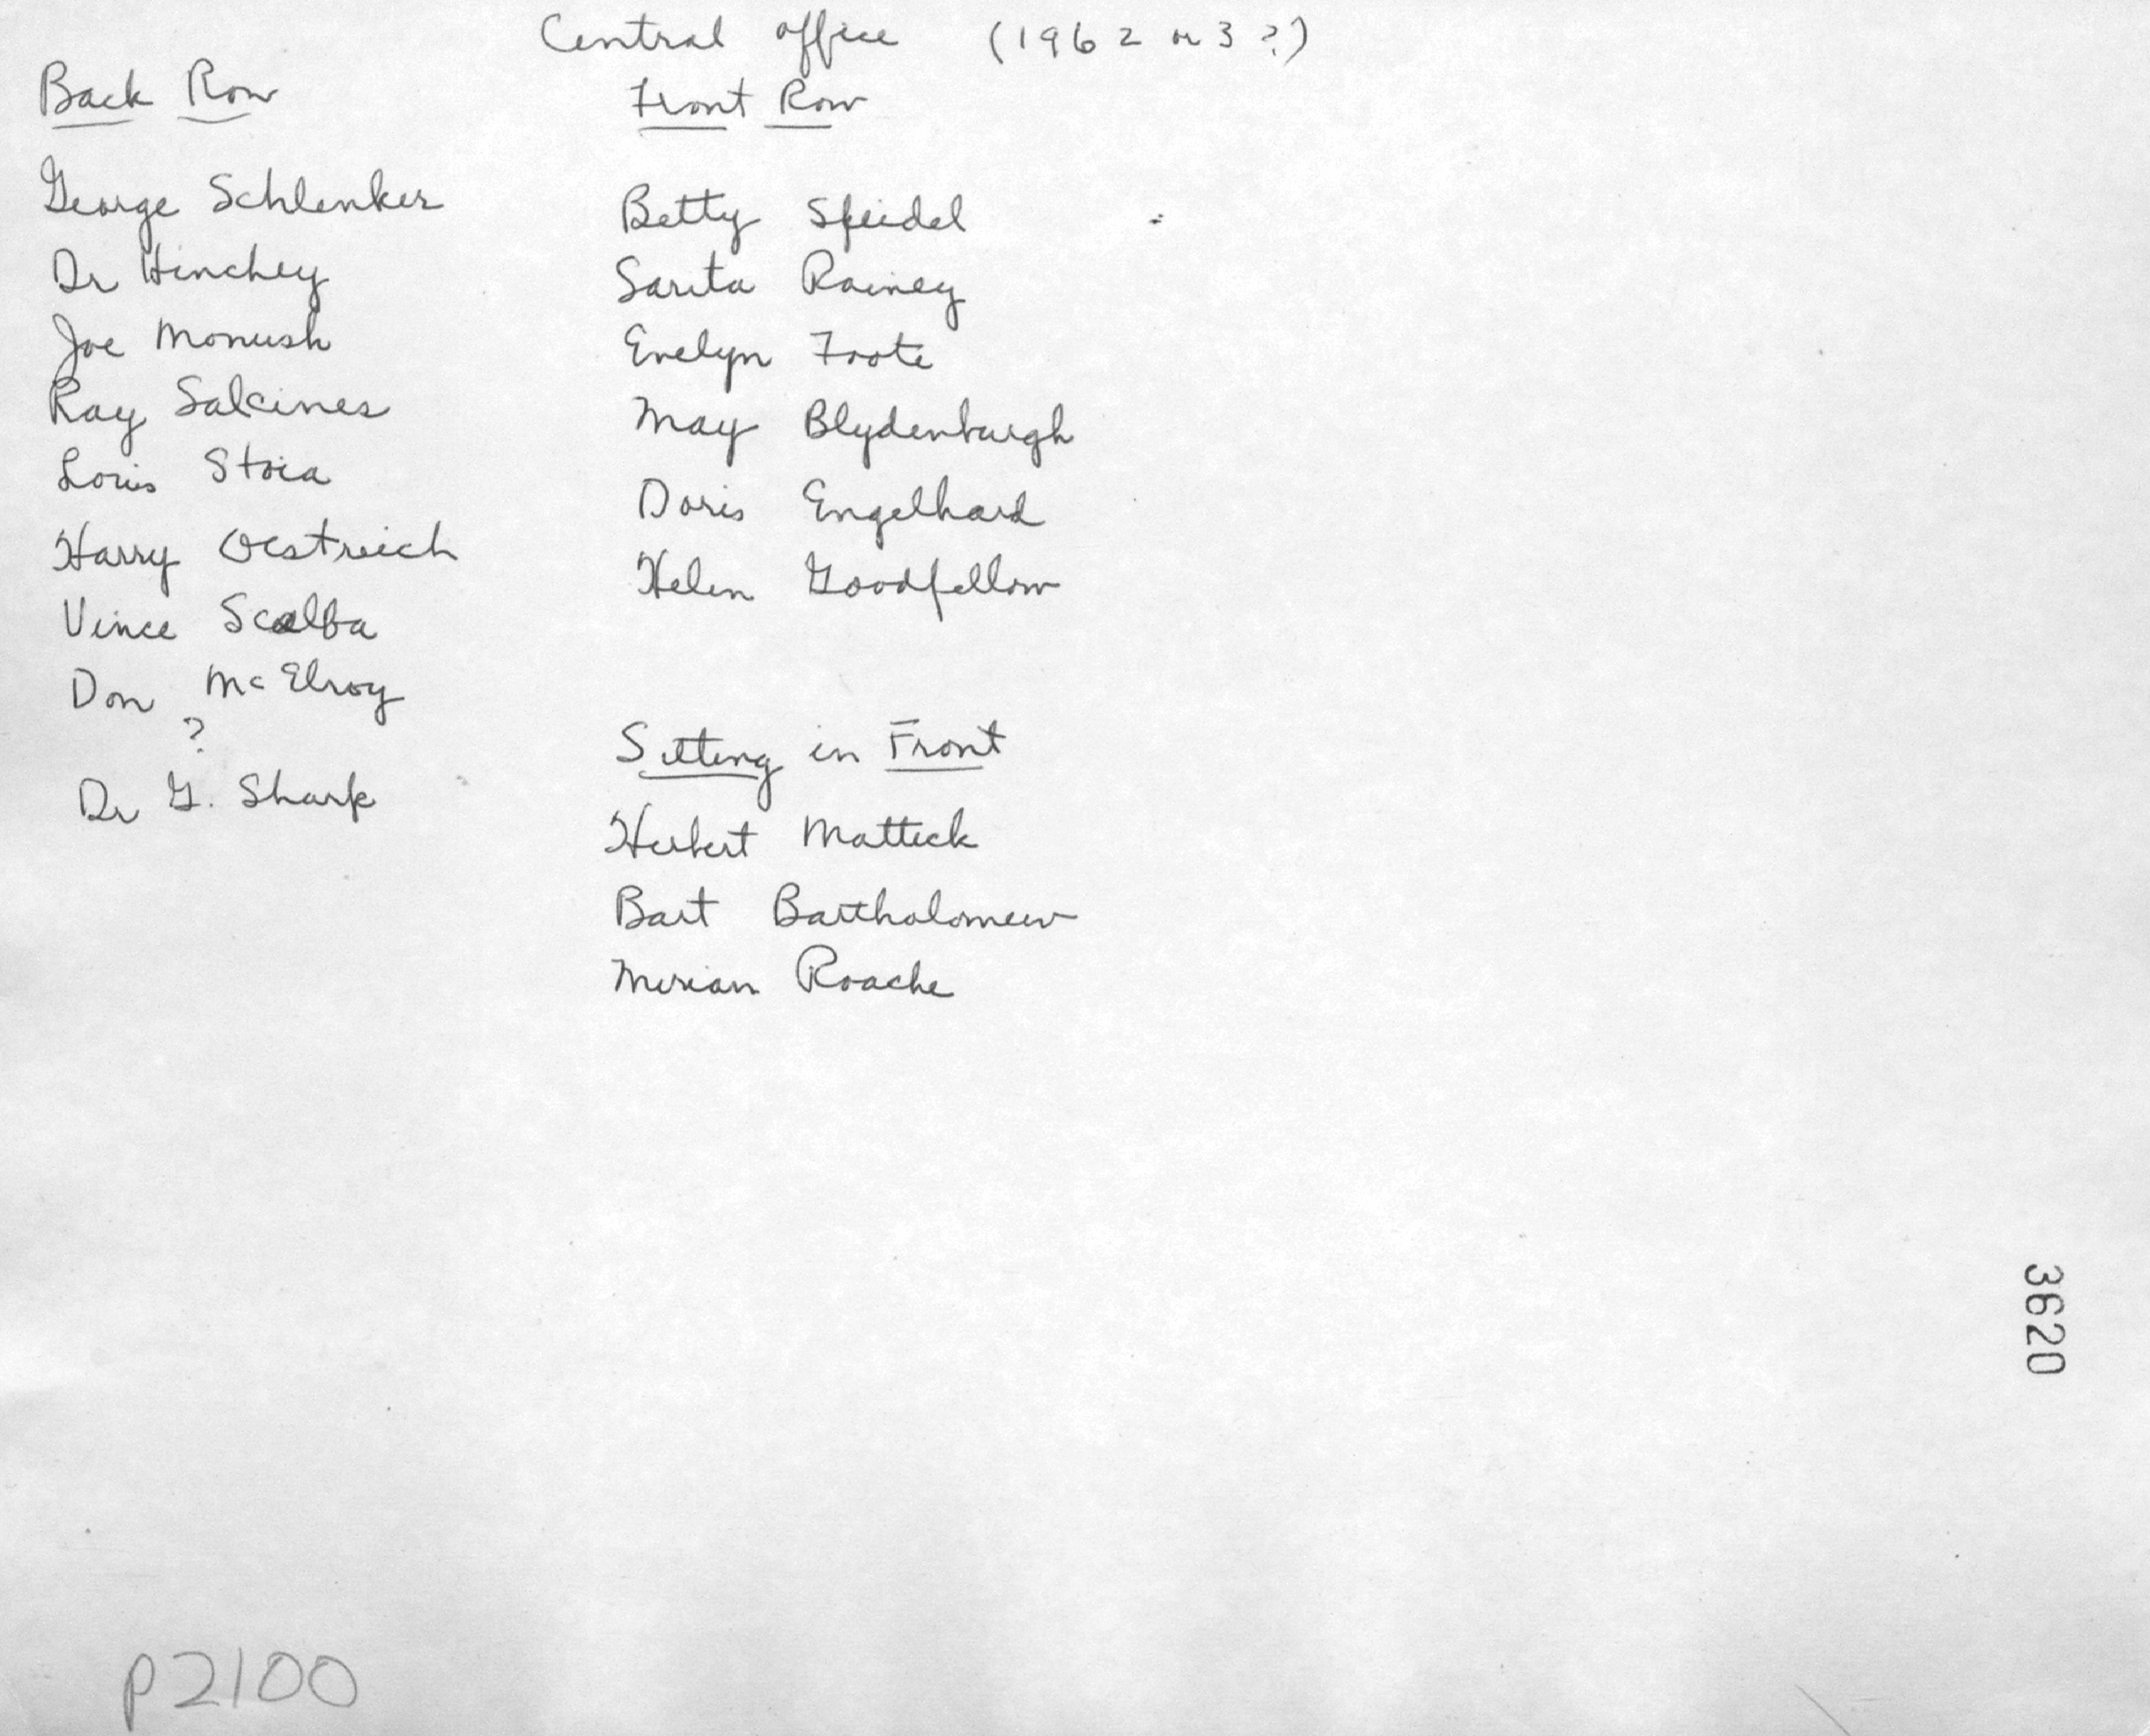 Central office (1962 or 3?)
Back Row
George Schlenker
Dr Hinchey
Joe Monush
Ray Salcines
Loris Stoia
Harry Oestreich
Vince Scalba
Don McElroy
?
Dr G. Shark
Front Row
Betty Speidel
Sarita Rainey
Evelyn Foote
May Blydenburgh
Doris Engelhard
Helen Goodfellow
Sitting in Front
Herbert Mattick
Bart Bartholomew
Mirian Roache
3620
P2100